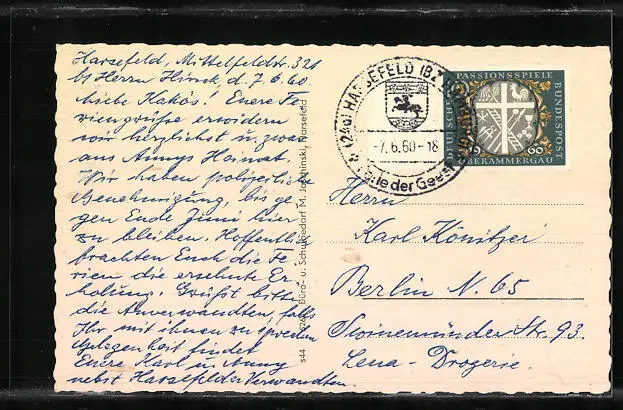 Harsefeld, Mittelfeldstr. 321
bs Herrn Hinck, d. 7.6.60
Liebe Kakös! Eure Fe-
riengrüße erwidern
wir herzlichst u. zwar
aus Annys Heimat.
Wir haben polizeiliche
Genehmigung, bis ge-
gen Ende Juni hier
zu bleiben. Hoffentlich
brachten Euch die Fe-
rien die ersehnte Er-
holung. Grüßt bitte
die Anverwandten, falls
Ihr mit ihnen zu sprechen
Gelegenheit findet
Eure Karl u. Anny
nebst Harsefelder Verwandten.
Büro- u. Schulbedarf M. Joschinski, Harsefeld
s44
(24a) HARSEFELD (BZ HAMBURG)
-7.6.60-18
Perle der Geest
PASSIONSSPIELE
OBERAMMERGAU
DEUTSCHE BUNDESPOST
19 60
Herrn
Karl Könitzer
Berlin N. 65
Swinemünder Str. 93.
Lena-Drogerie.